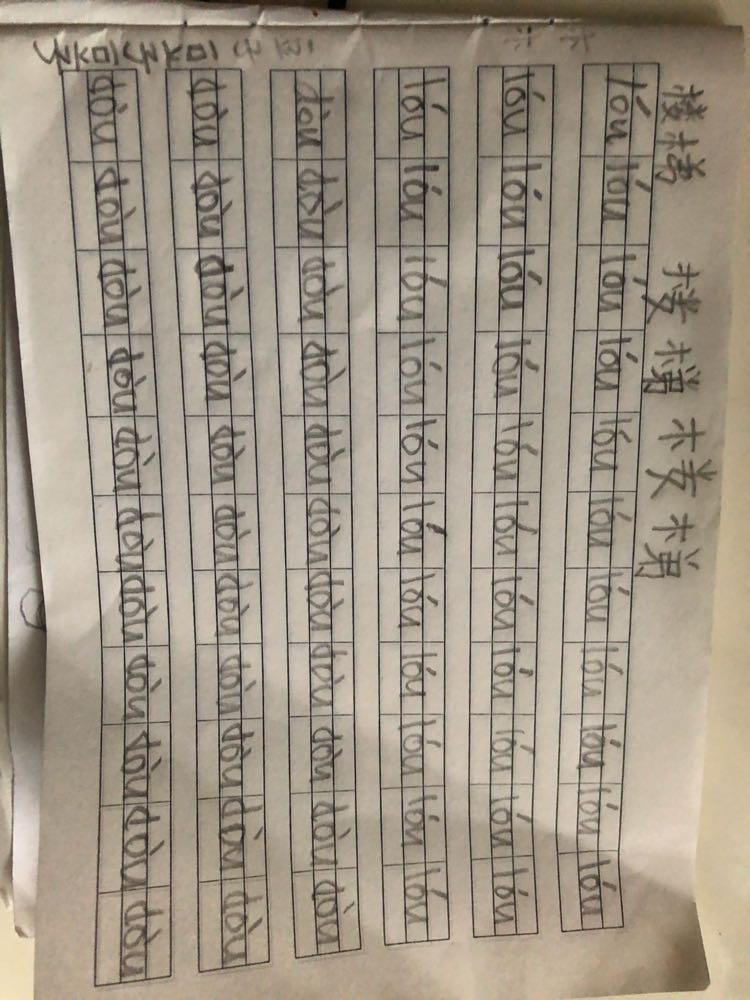 lóu lóu lóu lóu lóu lóu lóu lóu lóu lóu lóu
lóu lóu lóu lóu lóu lóu lóu lóu lóu lóu lóu
lóu lóu lóu lóu lóu lóu lóu lóu lóu lóu lóu
dòu dòu dòu dòu dòu dòu dòu dòu dòu dòu dòu
dòu dòu dòu dòu dòu dòu dòu dòu dòu dòu dòu
dòu dòu dòu dòu dòu dòu dòu dòu dòu dòu dòu